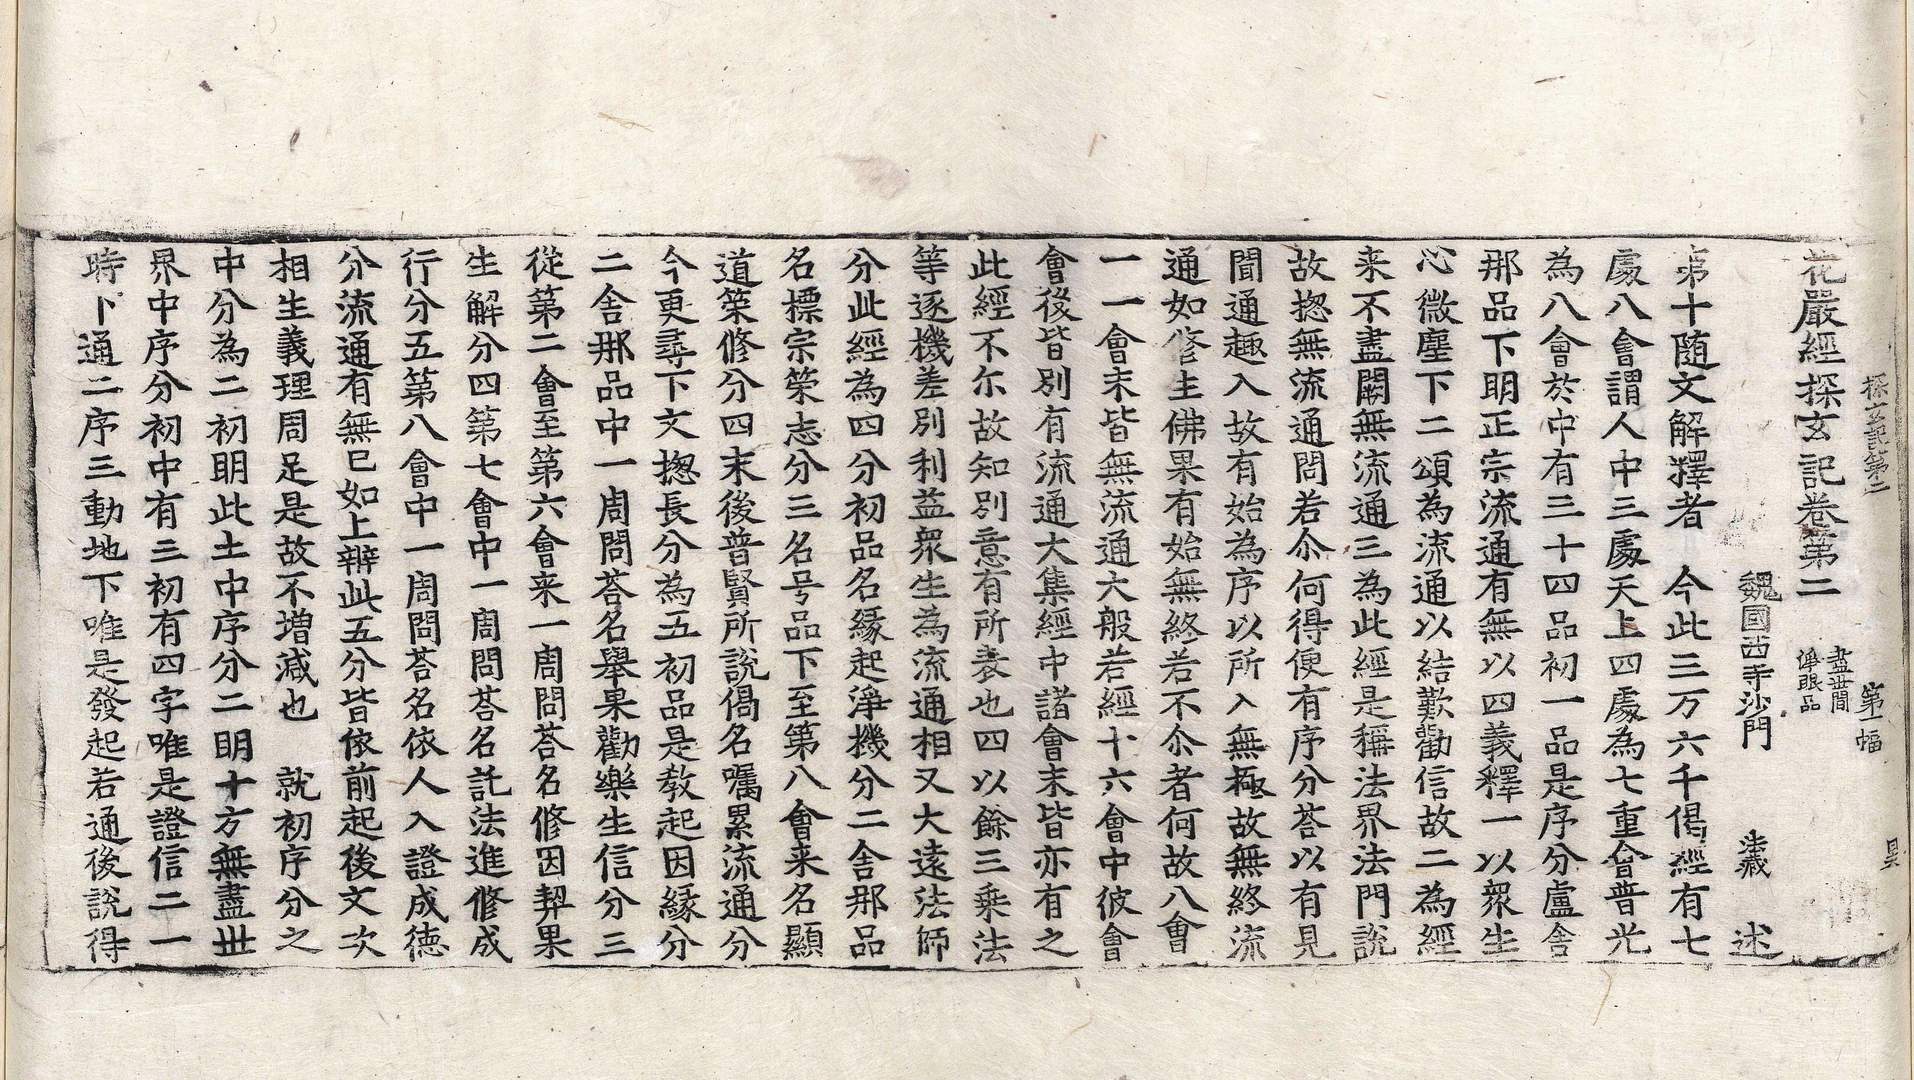 探玄記第二 第一幅 昊
花嚴經探玄記卷第二 盡世間
淨眼品
魏國西寺沙門 法藏 述
第十随文解釋者 今此三万六千偈經有七
處八會謂人中三處天上四處為七重會普光
為八會於中有三十四品初一品是序分盧舍
那品下明正宗流通有無以四義釋一以衆生
心微塵下二頌為流通以結歎勸信故二為經
来不盡闕無流通三為此經是稱法界法門說
故揔無流通問若尒何得便有序分荅以有見
聞通趣入故有始為序以所入無極故無終流
通如修生佛果有始無終若不尒者何故八會
一一會末皆無流通大般若經十六會中彼會
會後皆別有流通大集經中諸會末皆亦有之
此經不尒故知別意有所表也四以餘三乗法
等逐機差別利益衆生為流通相又大遠法師
分此經為四分初品名縁起淨機分二舍那品
名標宗策志分三名号品下至第八會来名顯
道策修分四末後普賢所說偈名囑累流通分
今更尋下文揔長分為五初品是教起因縁分
二舍那品中一周問荅名舉果勸樂生信分三
從第二會至第六會来一周問荅名修因契果
生解分四第七會中一周問荅名託法進修成
行分五第八會中一周問荅名依人入證成德
分流通有無已如上辨此五分皆依前起後文次
相生義理周足是故不増減也 就初序分之
中分為二初明此土中序分二明十方無盡世
界中序分初中有三初有四字唯是證信二一
時下通二序三動地下唯是發起若通後說得